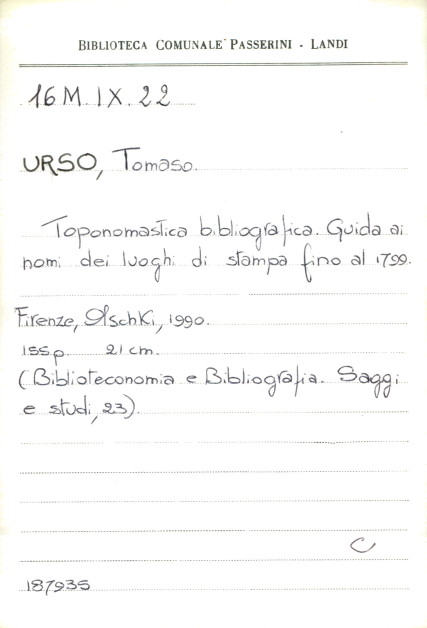 BIBLIOTECA COMUNALE PASSERINI - LANDI
16 M. IX. 22
URSO, Tomaso.
Toponomastica bibliografica. Guida ai
nomi dei luoghi di stampa fino al 1799.
Firenze, Olschki, 1990.
155 p. 21 cm.
(Biblioteconomia e Bibliografia. Saggi
e studi, 23).
C
187935